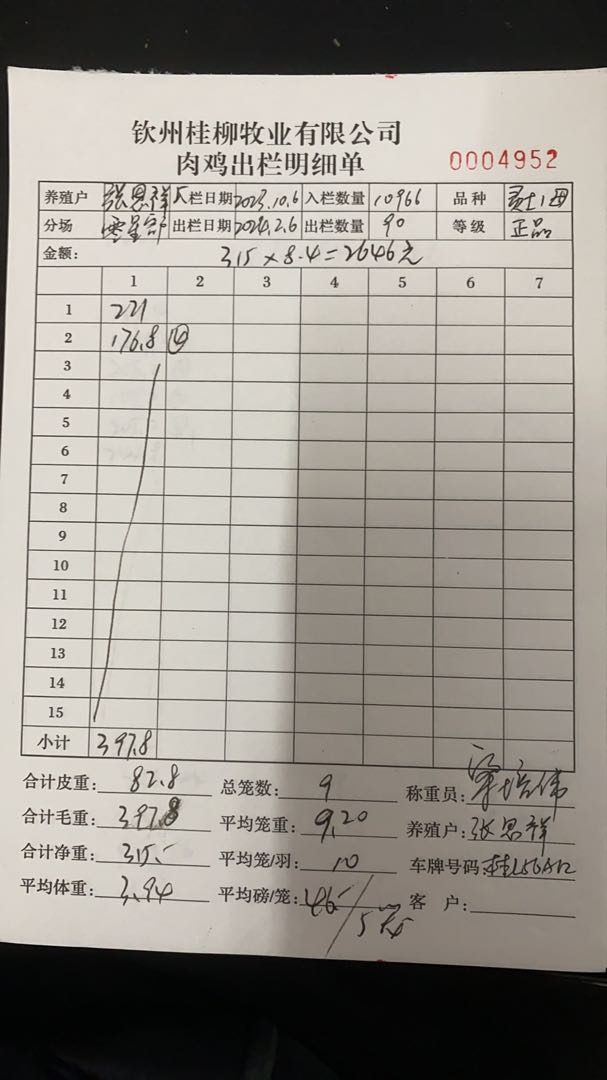 钦州桂柳牧业有限公司
肉鸡出栏明细单
0004952
养殖户 张恩祥 入栏日期 2023.10.6 入栏数量 10966 品种
分场 零星部 出栏日期 2024.2.6 出栏数量 90 等级 正品
金额： 315×8.4=2646元
1 2 3 4 5 6 7
1 221
2 176.8 ④
3
4
5
6
7
8
9
10
11
12
13
14
15
小计 397.8
合计皮重：82.8 总笼数：9 称重员：
合计毛重：397.8 平均笼重：9.20 养殖户：张恩祥
合计净重：315.- 平均笼/羽：10 车牌号码：
平均体重：3.94 平均磅/笼：46.-/5笼 客户：